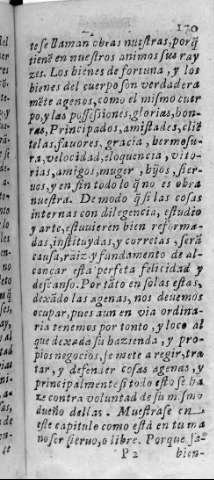 170
te se llaman obras nuestras, porq̃
tienẽ en nuestros animos sus ray
zes. Los bienes de fortuna, y los
bienes del cuerpo son verdadera
mẽte agenos, como el mismo cuer
po, y las possessiones, glorias, hon-
ras, Principados, amistades, cliẽ
telas, fauores, gracia, hermosu-
ra, velocidad, eloquencia, vito-
rias, amigos, muger, hijos, sier-
uos, y en fin todo lo q̃ no es obra
nuestra. De modo q̃ si las cosas
internas con diligencia, estudio
y arte, estuuieren bien reforma-
das, instituydas, y corretas, serã
causa, raiz y fundamento de al-
cançar esta perfeta felicidad y
descanso. Por tãto en solas estas,
dexãdo las agenas, nos deuemos
ocupar, pues aun en via ordina
ria tenemos por tonto, y loco al
que dexada su hazienda, y pro-
pios negocios, se mete a regir, tra
tar, y defender cosas agenas, y
principalmente si todo esto se ha
ze contra voluntad de su mismo
dueño dellas. Muestrase en
este capitulo como está en tu ma
no ser sieruo, o libre. Porque sa-
P 2 bien-